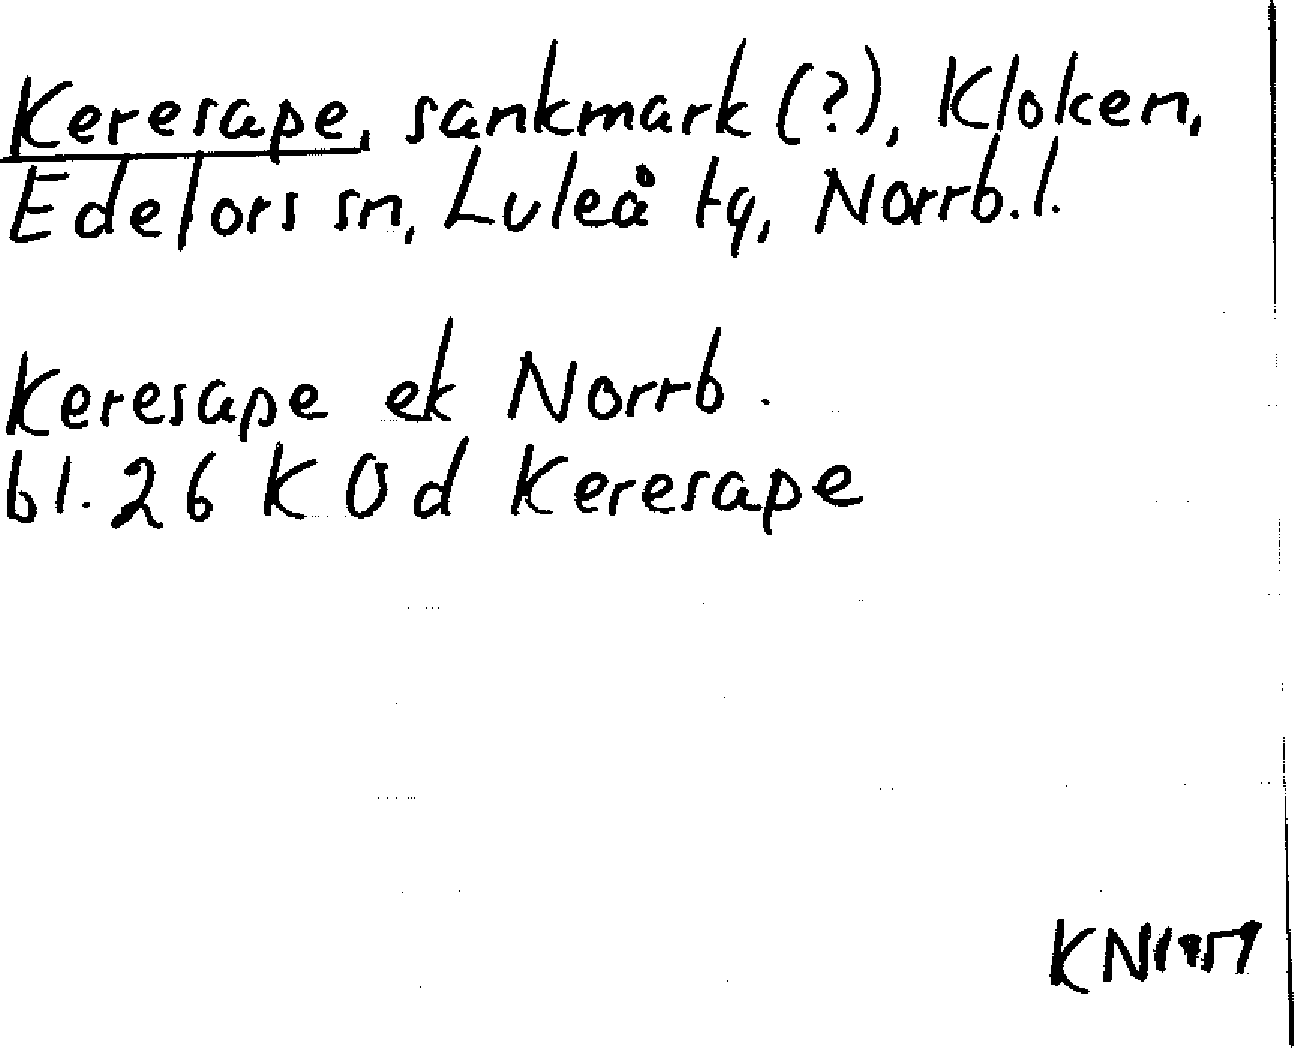 Keresape, sankmark (?), Kloken,
Edefors sn, Luleå tg, Norrb.l.
Keresape ek Norrb.
bl. 26 K Od Keresape
KN